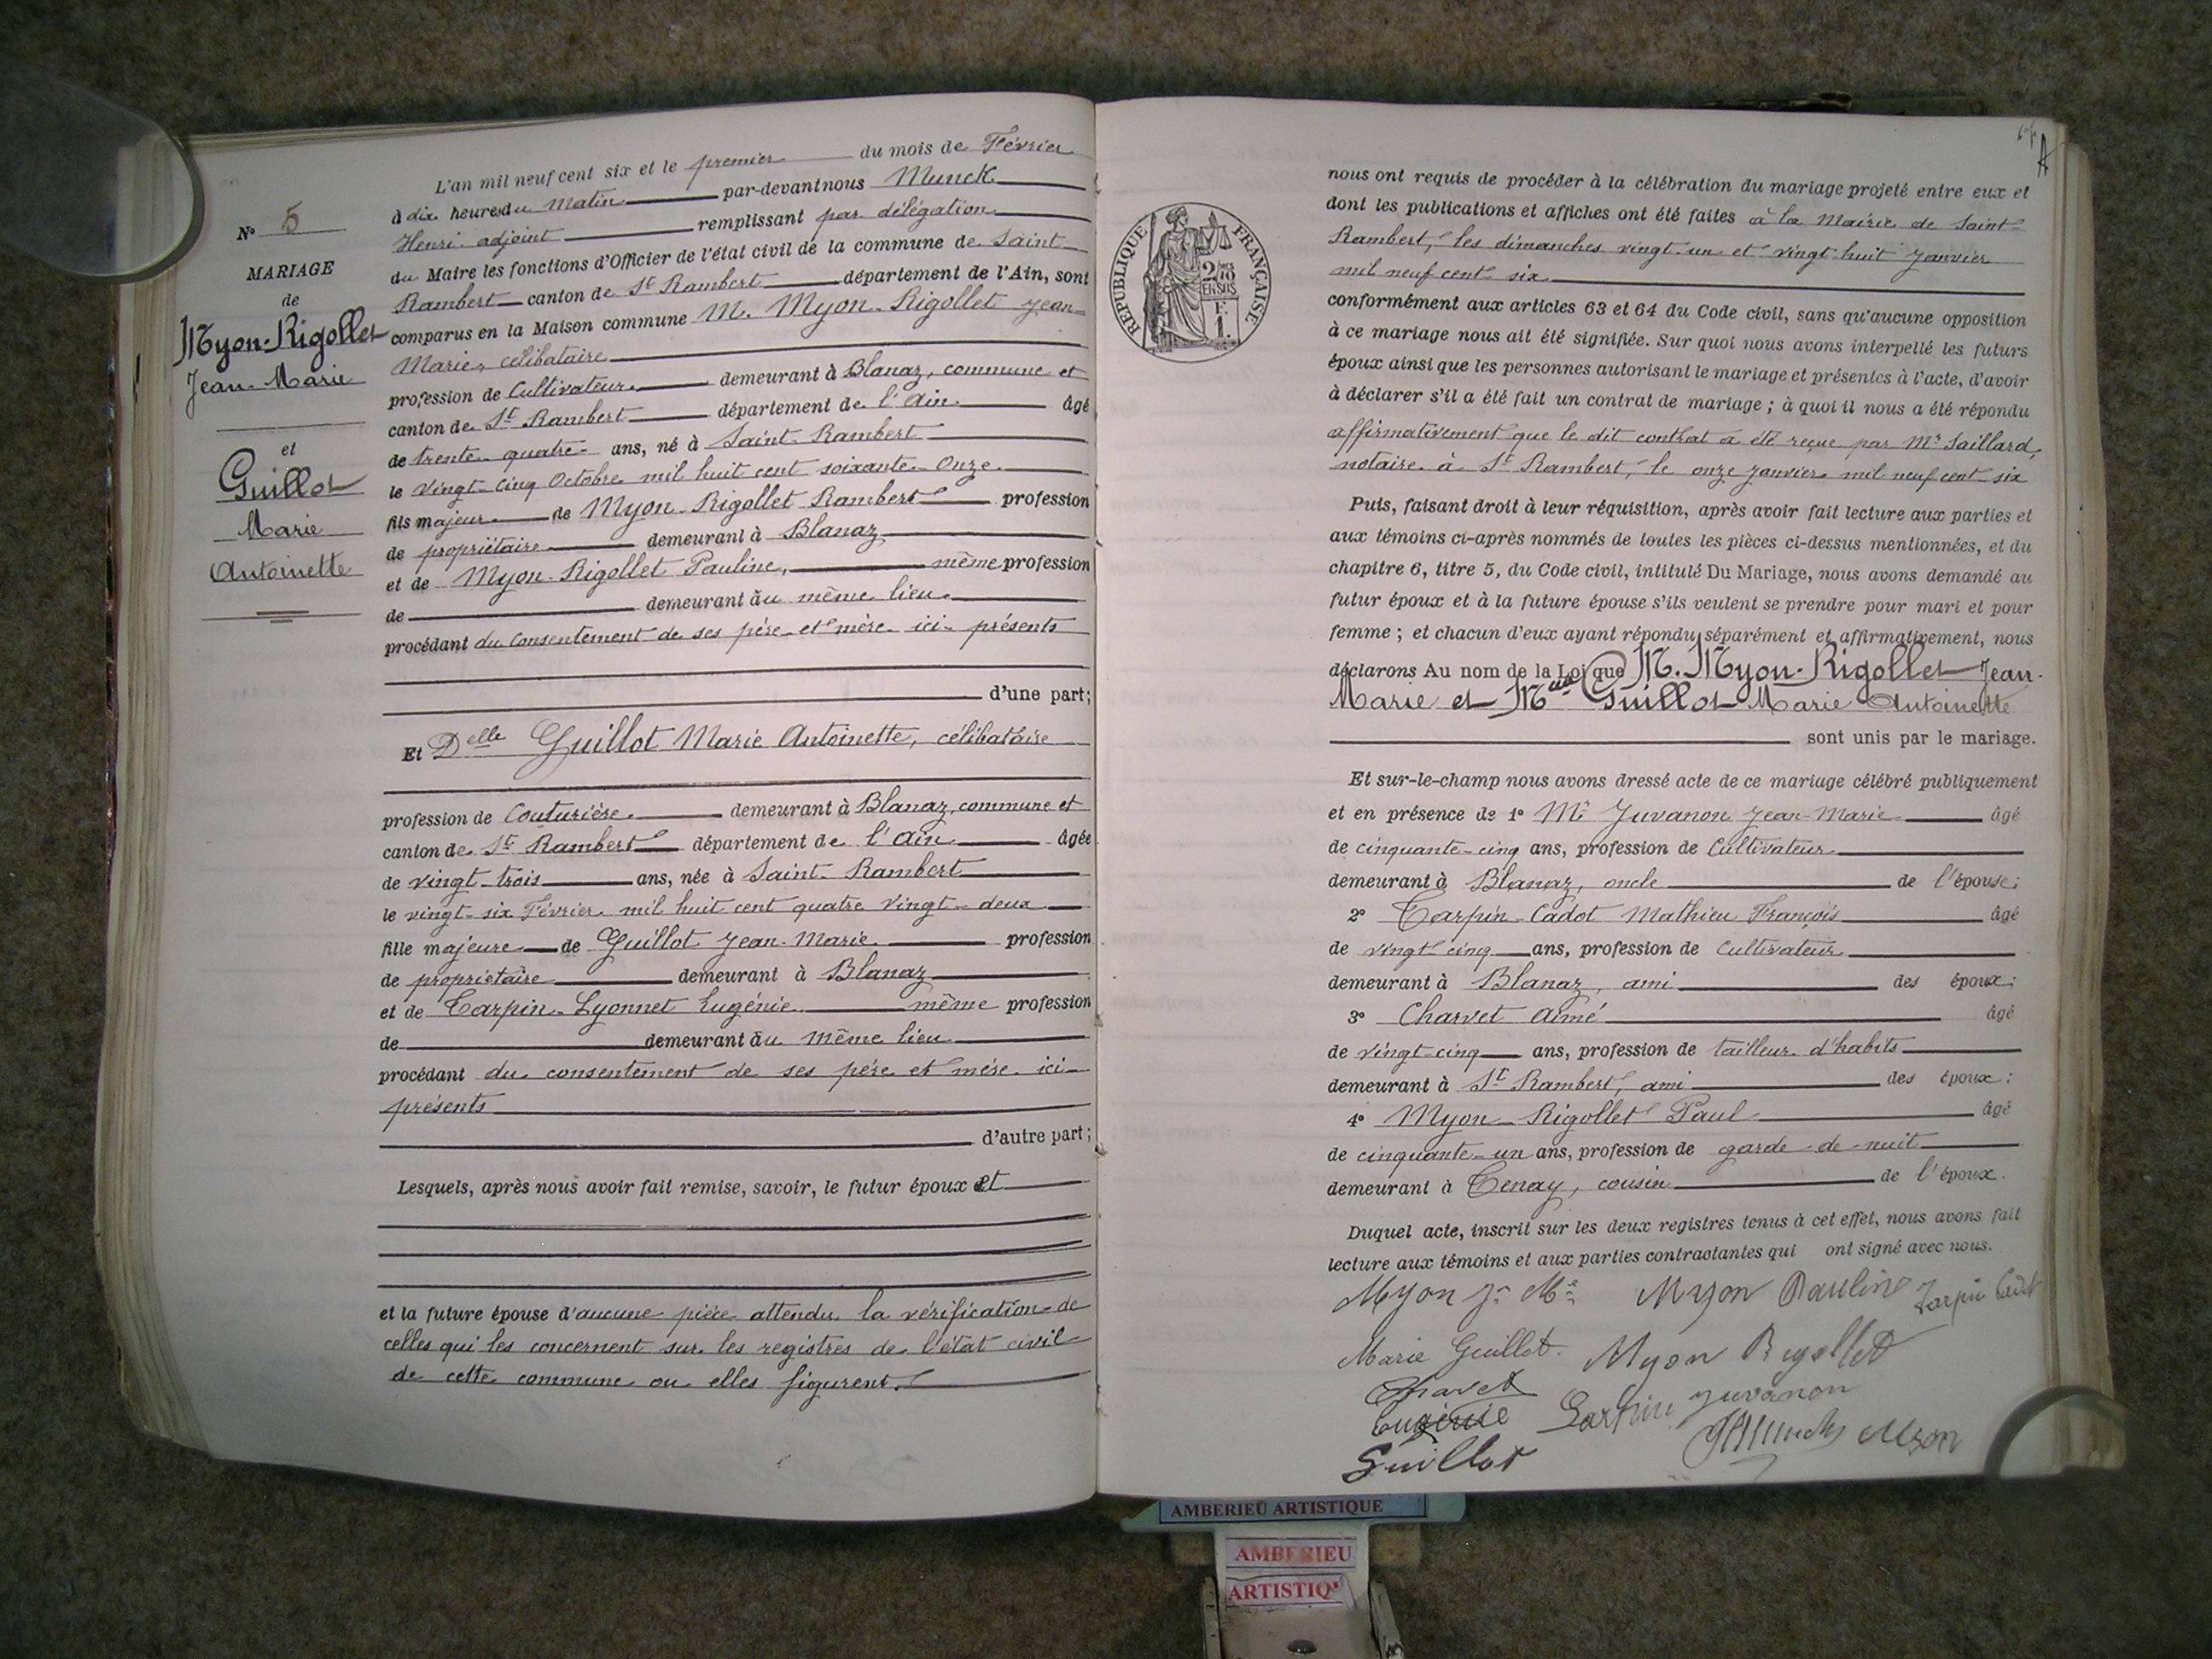 N° 5
MARIAGE
de
Myon-Rigollet
Jean-Marie
et
Guillot
Marie
Antoinette
L'an mil neuf cent six et le premier du mois de Février
à dix heures du Matin par-devant nous Munck
Henri adjoint remplissant par délégation
du Maire les fonctions d'Officier de l'état civil de la commune de Saint-
Rambert canton de St Rambert département de l'Ain, sont
comparus en la Maison commune M. Myon-Rigollet Jean-
Marie, célibataire
profession de Cultivateur demeurant à Blanaz, commune et
canton de St Rambert département de l'Ain âgé
de trente-quatre ans, né à Saint-Rambert
le vingt-cinq Octobre mil huit cent soixante-Onze
fils majeur de Myon-Rigollet Rambert profession
de propriétaire demeurant à Blanaz
et de Myon-Rigollet Pauline, même profession
de demeurant au même lieu
procédant du consentement de ses père et mère ici-présents
d'une part;
Et Delle Guillot Marie Antoinette, célibataire
profession de Couturière demeurant à Blanaz, commune et
canton de St Rambert département de l'Ain âgée
de vingt-trois ans, née à Saint-Rambert
le vingt-six Février mil huit cent quatre vingt-deux
fille majeure de Guillot Jean-Marie profession
de propriétaire demeurant à Blanaz
et de Tarpin-Lyonnet Eugénie même profession
de demeurant au même lieu
procédant du consentement de ses père et mère ici-
présents
d'autre part;
Lesquels, après nous avoir fait remise, savoir, le futur époux et
et la future épouse d'aucune pièce attendu la vérification de
celles qui les concernent sur les registres de l'état civil
de cette commune ou elles figurent.
RÉPUBLIQUE FRANÇAISE
2/10es
EN SUS
F.
1.
nous ont requis de procéder à la célébration du mariage projeté entre eux et
dont les publications et affiches ont été faites à la Mairie de Saint-
Rambert, les dimanches vingt-un et vingt-huit Janvier
mil neuf cent six
conformément aux articles 63 et 64 du Code civil, sans qu'aucune opposition
à ce mariage nous ait été signifiée. Sur quoi nous avons interpellé les futurs
époux ainsi que les personnes autorisant le mariage et présentes à l'acte, d'avoir
à déclarer s'il a été fait un contrat de mariage; à quoi il nous a été répondu
affirmativement que le dit contrat a été reçue par Mr Saillard,
notaire à St Rambert, le onze Janvier mil neuf cent six
Puis, faisant droit à leur réquisition, après avoir fait lecture aux parties et
aux témoins ci-après nommés de toutes les pièces ci-dessus mentionnées, et du
chapitre 6, titre 5, du Code civil, intitulé Du Mariage, nous avons demandé au
futur époux et à la future épouse s'ils veulent se prendre pour mari et pour
femme; et chacun d'eux ayant répondu séparément et affirmativement, nous
déclarons Au nom de la Loi que M. Myon-Rigollet Jean-
Marie et Mlle Guillot Marie Antoinette
sont unis par le mariage.
Et sur-le-champ nous avons dressé acte de ce mariage célébré publiquement
et en présence de 1° Mr Juvanon Jean-Marie âgé
de cinquante-cinq ans, profession de Cultivateur
demeurant à Blanaz, oncle de l'épouse;
2° Tarpin-Cadot Mathieu François âgé
de vingt cinq ans, profession de Cultivateur
demeurant à Blanaz, ami des époux;
3° Charvet Aimé âgé
de vingt-cinq ans, profession de tailleur d'habits
demeurant à St Rambert, ami des époux;
4° Myon-Rigollet Paul âgé
de cinquante-un ans, profession de garde-de-nuit
demeurant à Tenay, cousin de l'époux.
Duquel acte, inscrit sur les deux registres tenus à cet effet, nous avons fait
lecture aux témoins et aux parties contractantes qui ont signé avec nous.
Myon Jn Mie Myon Pauline Tarpin Cadot
Marie Guillot. Myon Rigollet
Charvet
Eugénie Tarpin Juvanon
Guillot HMunck Myon
AMBERIEU ARTISTIQUE
AMBERIEU
ARTISTIQ